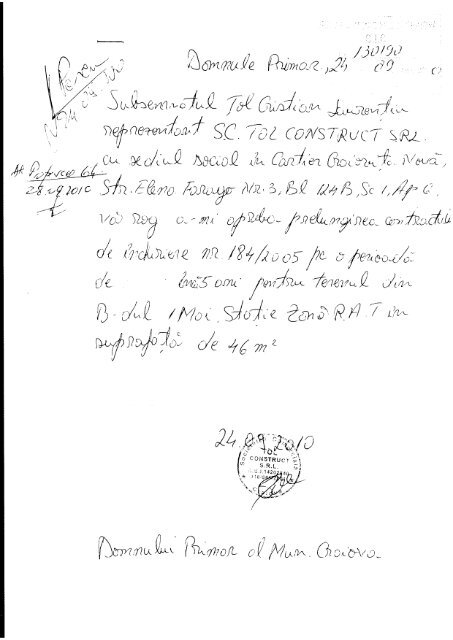 130190
Domnule Primar, 24 09
Subsemnatul Tol Cristian Laurențiu
reprezentant SC. TOL CONSTRUCT SRL
cu sediul social în Cartier Craiovița Nouă,
Str. Elena Farago Nr. 3, Bl 124B, Sc 1, Ap 6.
vă rog a-mi aproba prelungirea contractului
de închiriere nr 184/2005 pe o perioadă
de încă 5 ani pentru terenul din
B-dul 1 Mai Stație Zonă R.A.T în
suprafață de 46 m²
28.09.2010
24.09.2010
TOL
CONSTRUCT
S.R.L.
Domnului Primar al Mun. Craiova